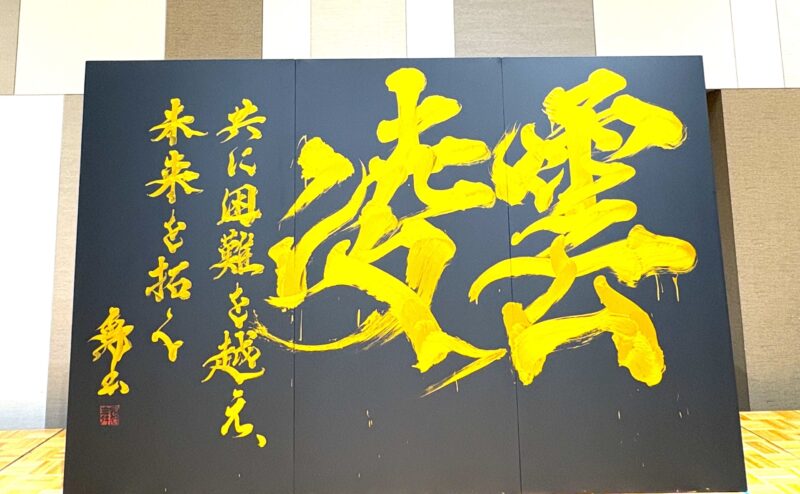 雲凌
共に困難を越え、
未来を拓く